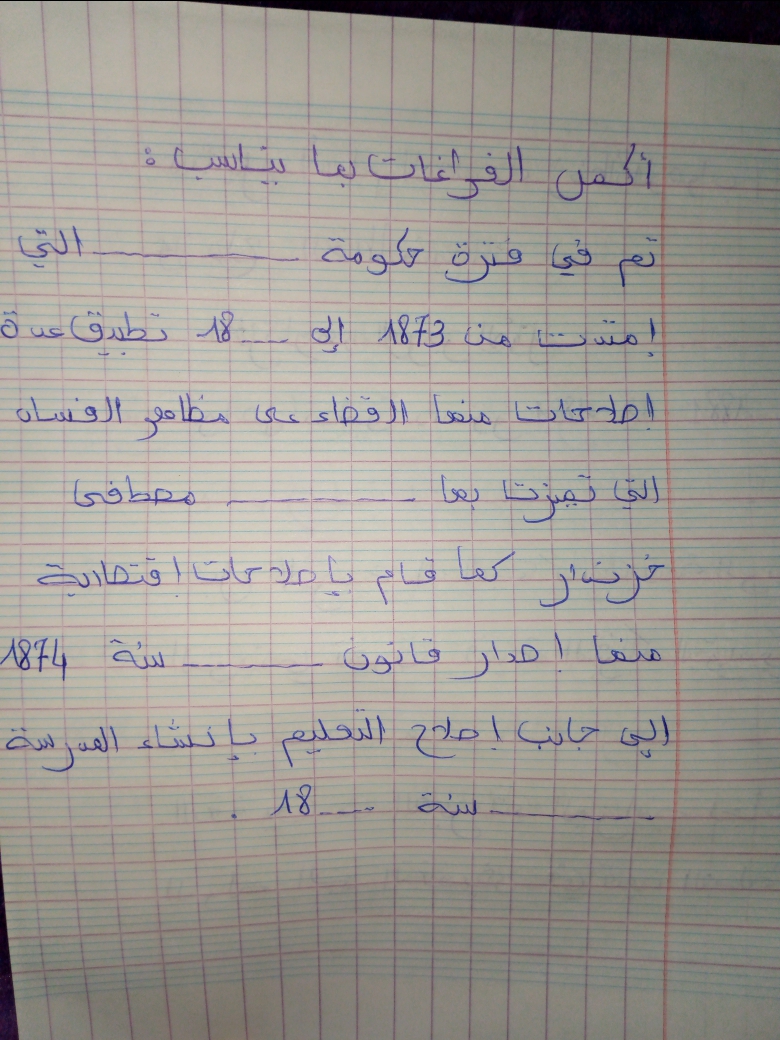 أكمل الفراغات بما يناسب :
تم في فترة حكومة ________ التي
إمتدت من 1873 إلى ___18 تطبيق عدة
إصلاحات منها القضاء على مظاهر الفساد
التي تميزت بها ________ مصطفى
خزندار كما قام بإصلاحات اقتصادية
منها إصدار قانون ______ سنة 1874
إلى جانب إصلاح التعليم بإنشاء المدرسة
_______ سنة ___18 .